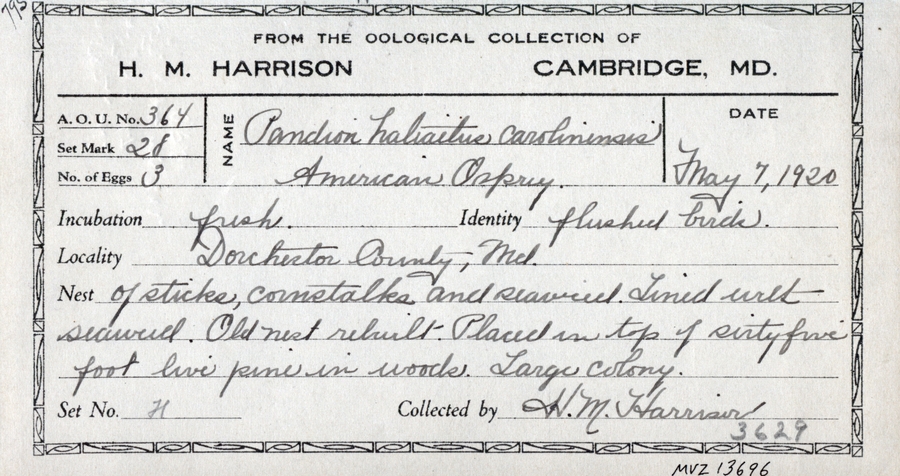 793
FROM THE OOLOGICAL COLLECTION OF
H. M. HARRISON CAMBRIDGE, MD.
A. O. U. No. 364
Set Mark 28
No. of Eggs 3
NAME
Pandion haliaitus carolinensis
American Osprey.
DATE
May 7, 1920
Incubation fresh. Identity flushed birds.
Locality Dorchester County, Md.
Nest of sticks, cornstalks and seaweed. Lined with
seaweed. Old nest rebuilt. Placed in top of sixty five
foot live pine in woods. Large colony.
Set No. H Collected by H. M. Harrison
3629
MVZ 13696